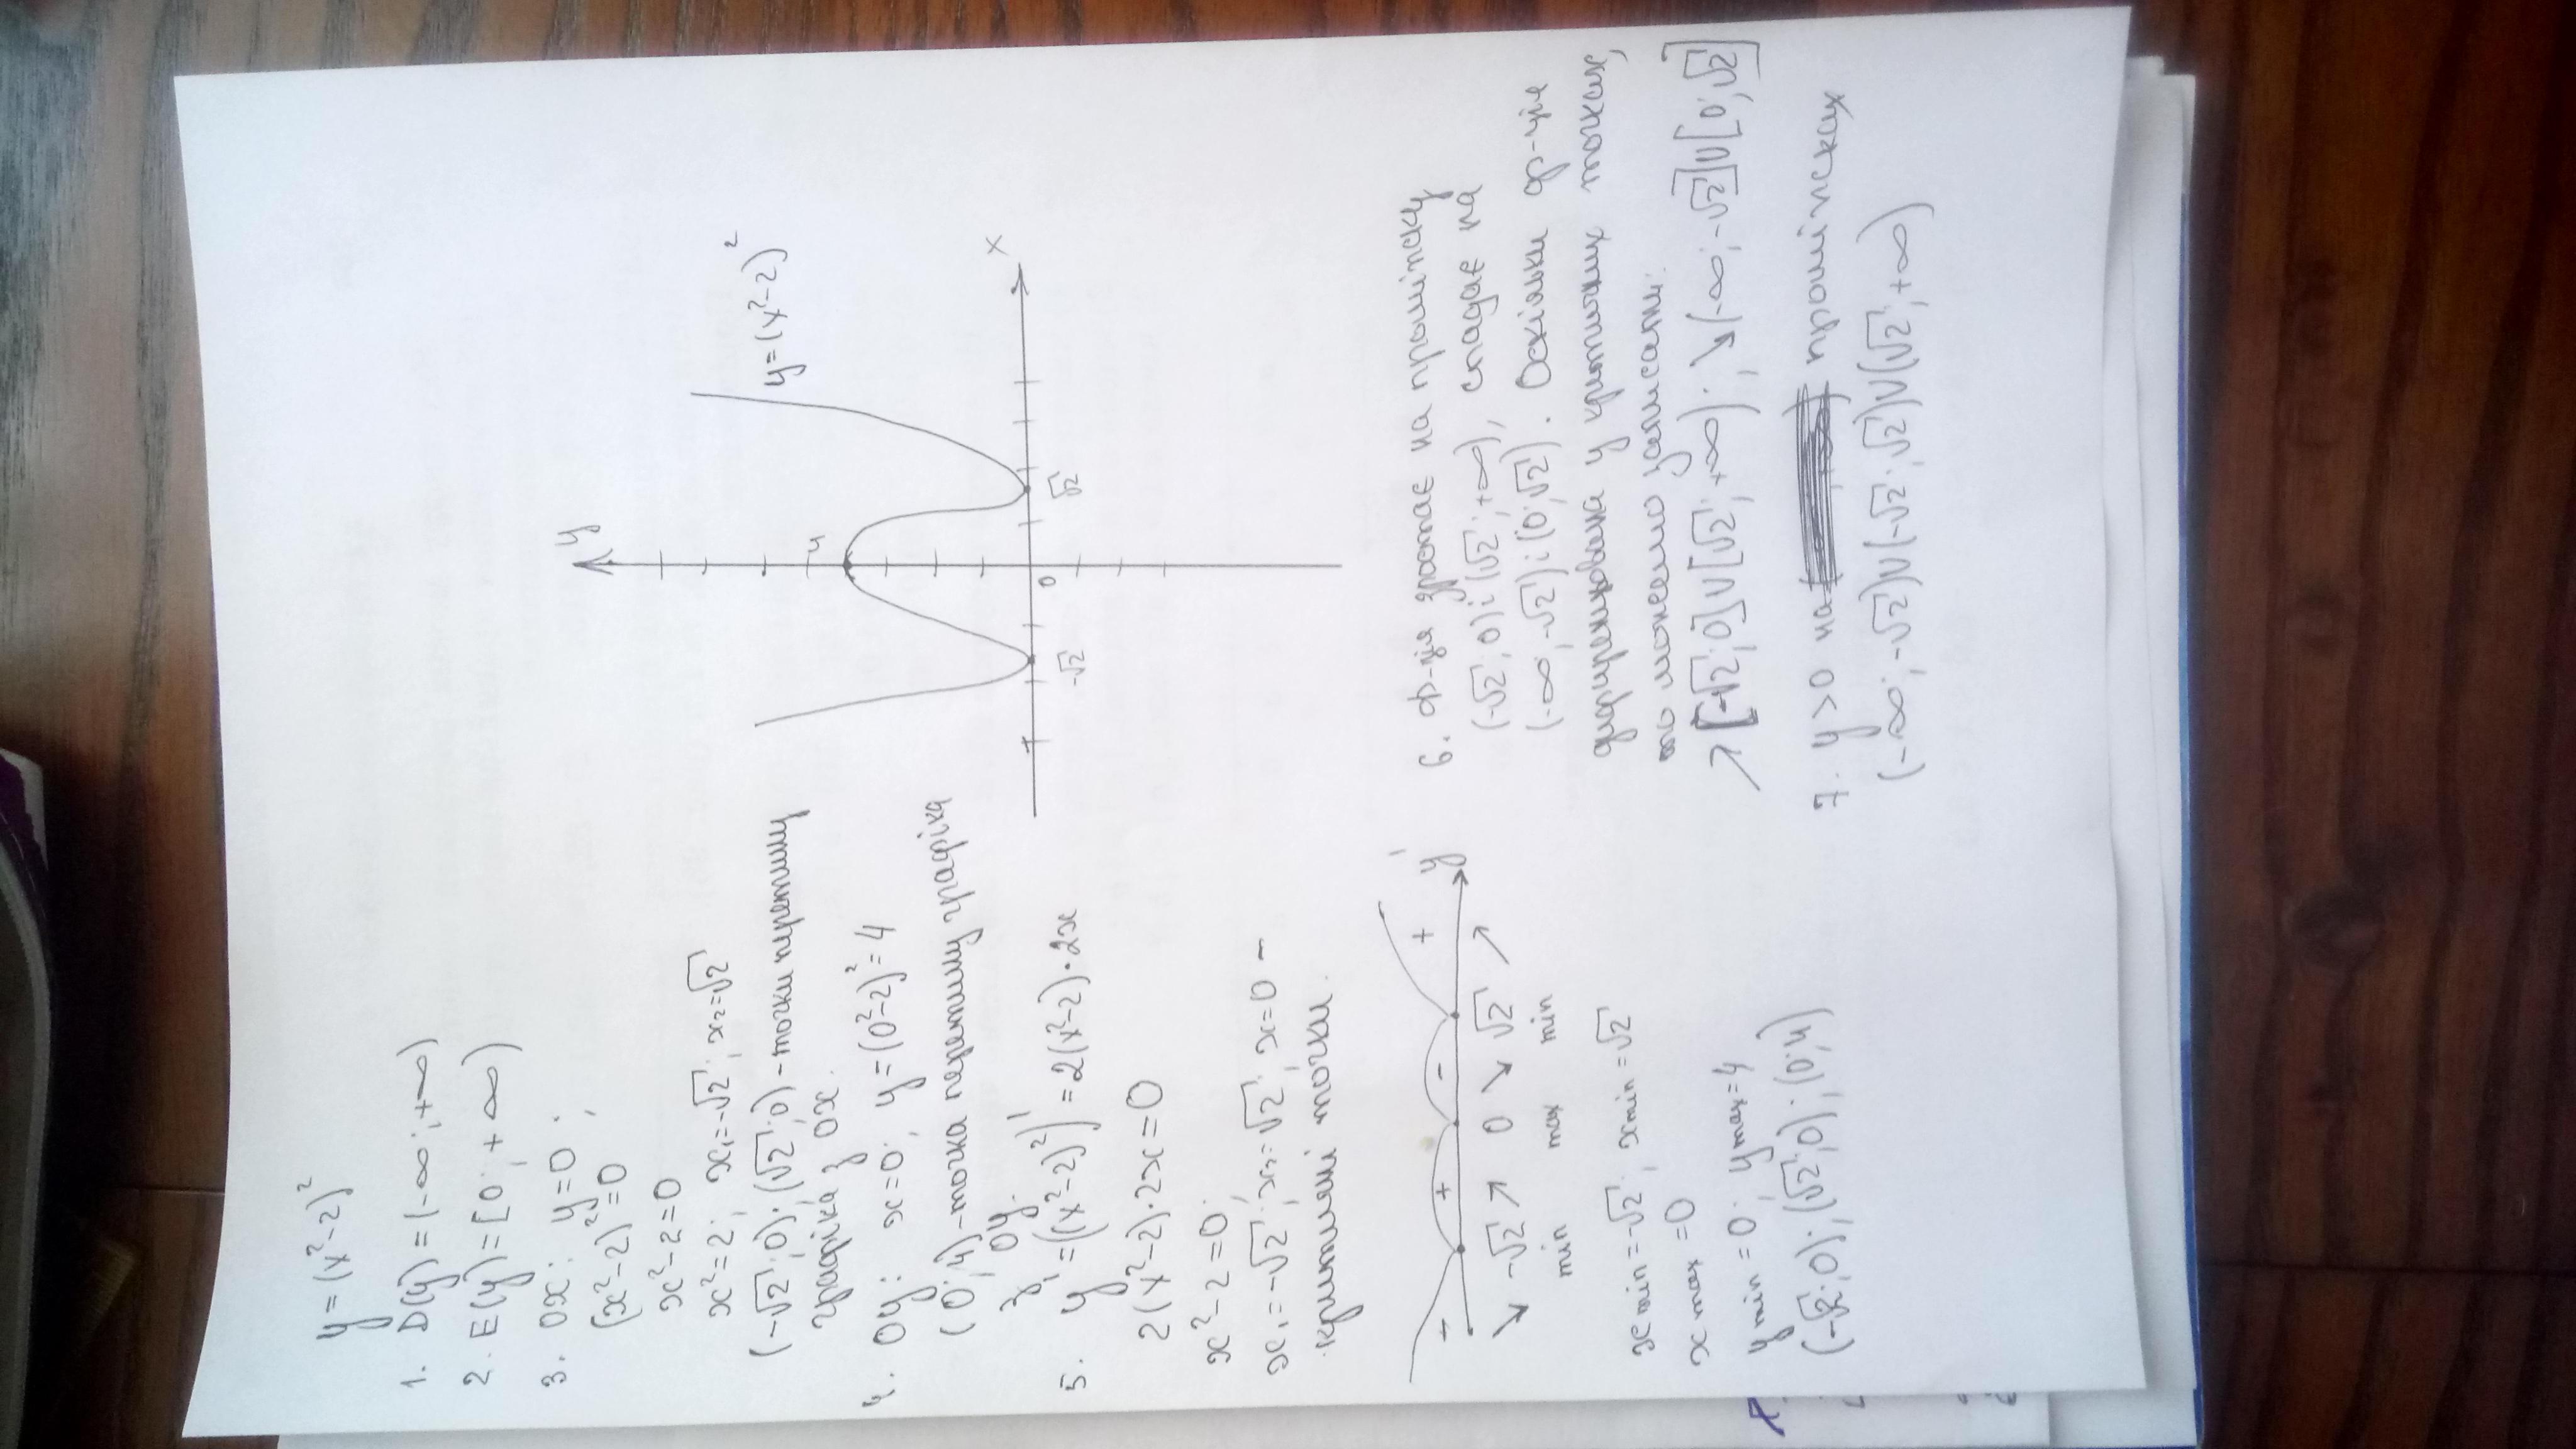 y=(x²-2)²
1. D(y)=(-∞;+∞)
2. E(y)=[0;+∞)
3. Ox: y=0;
(x²-2)²=0
x²-2=0
x²=2; x₁=-√2; x₂=√2
(-√2;0);(√2;0)-точки перетину
графіка з Ox.
4. Oy: x=0; y=(0²-2)²=4
(0;4)-точка перетину графіка
з Oy.
5. y'=((x²-2)²)'=2(x²-2)·2x
2(x²-2)·2x=0
x²-2=0;
x₁=-√2; x₂=√2; x=0 -
критичні точки.
+ + - + y'
↘ -√2 ↗ 0 ↘ √2 ↗
min max min
x min=-√2; x min=√2
x max=0
y min=0; y max=4
(-√2;0);(√2;0);(0;4)
y
y=(x²-2)²
4
x
-√2 0 √2
6. Ф-ція зростає на проміжку
(-√2;0) і (√2;+∞), спадає на
(-∞;-√2) і (0;√2). Оскільки ф-ція
у критичних точках,
то можемо записати:
↗[-√2;0]∪[√2;+∞); ↘(-∞;-√2]∪[0;√2]
7. y>0 на проміжках
(-∞;-√2)∪(-√2;√2)∪(√2;+∞)